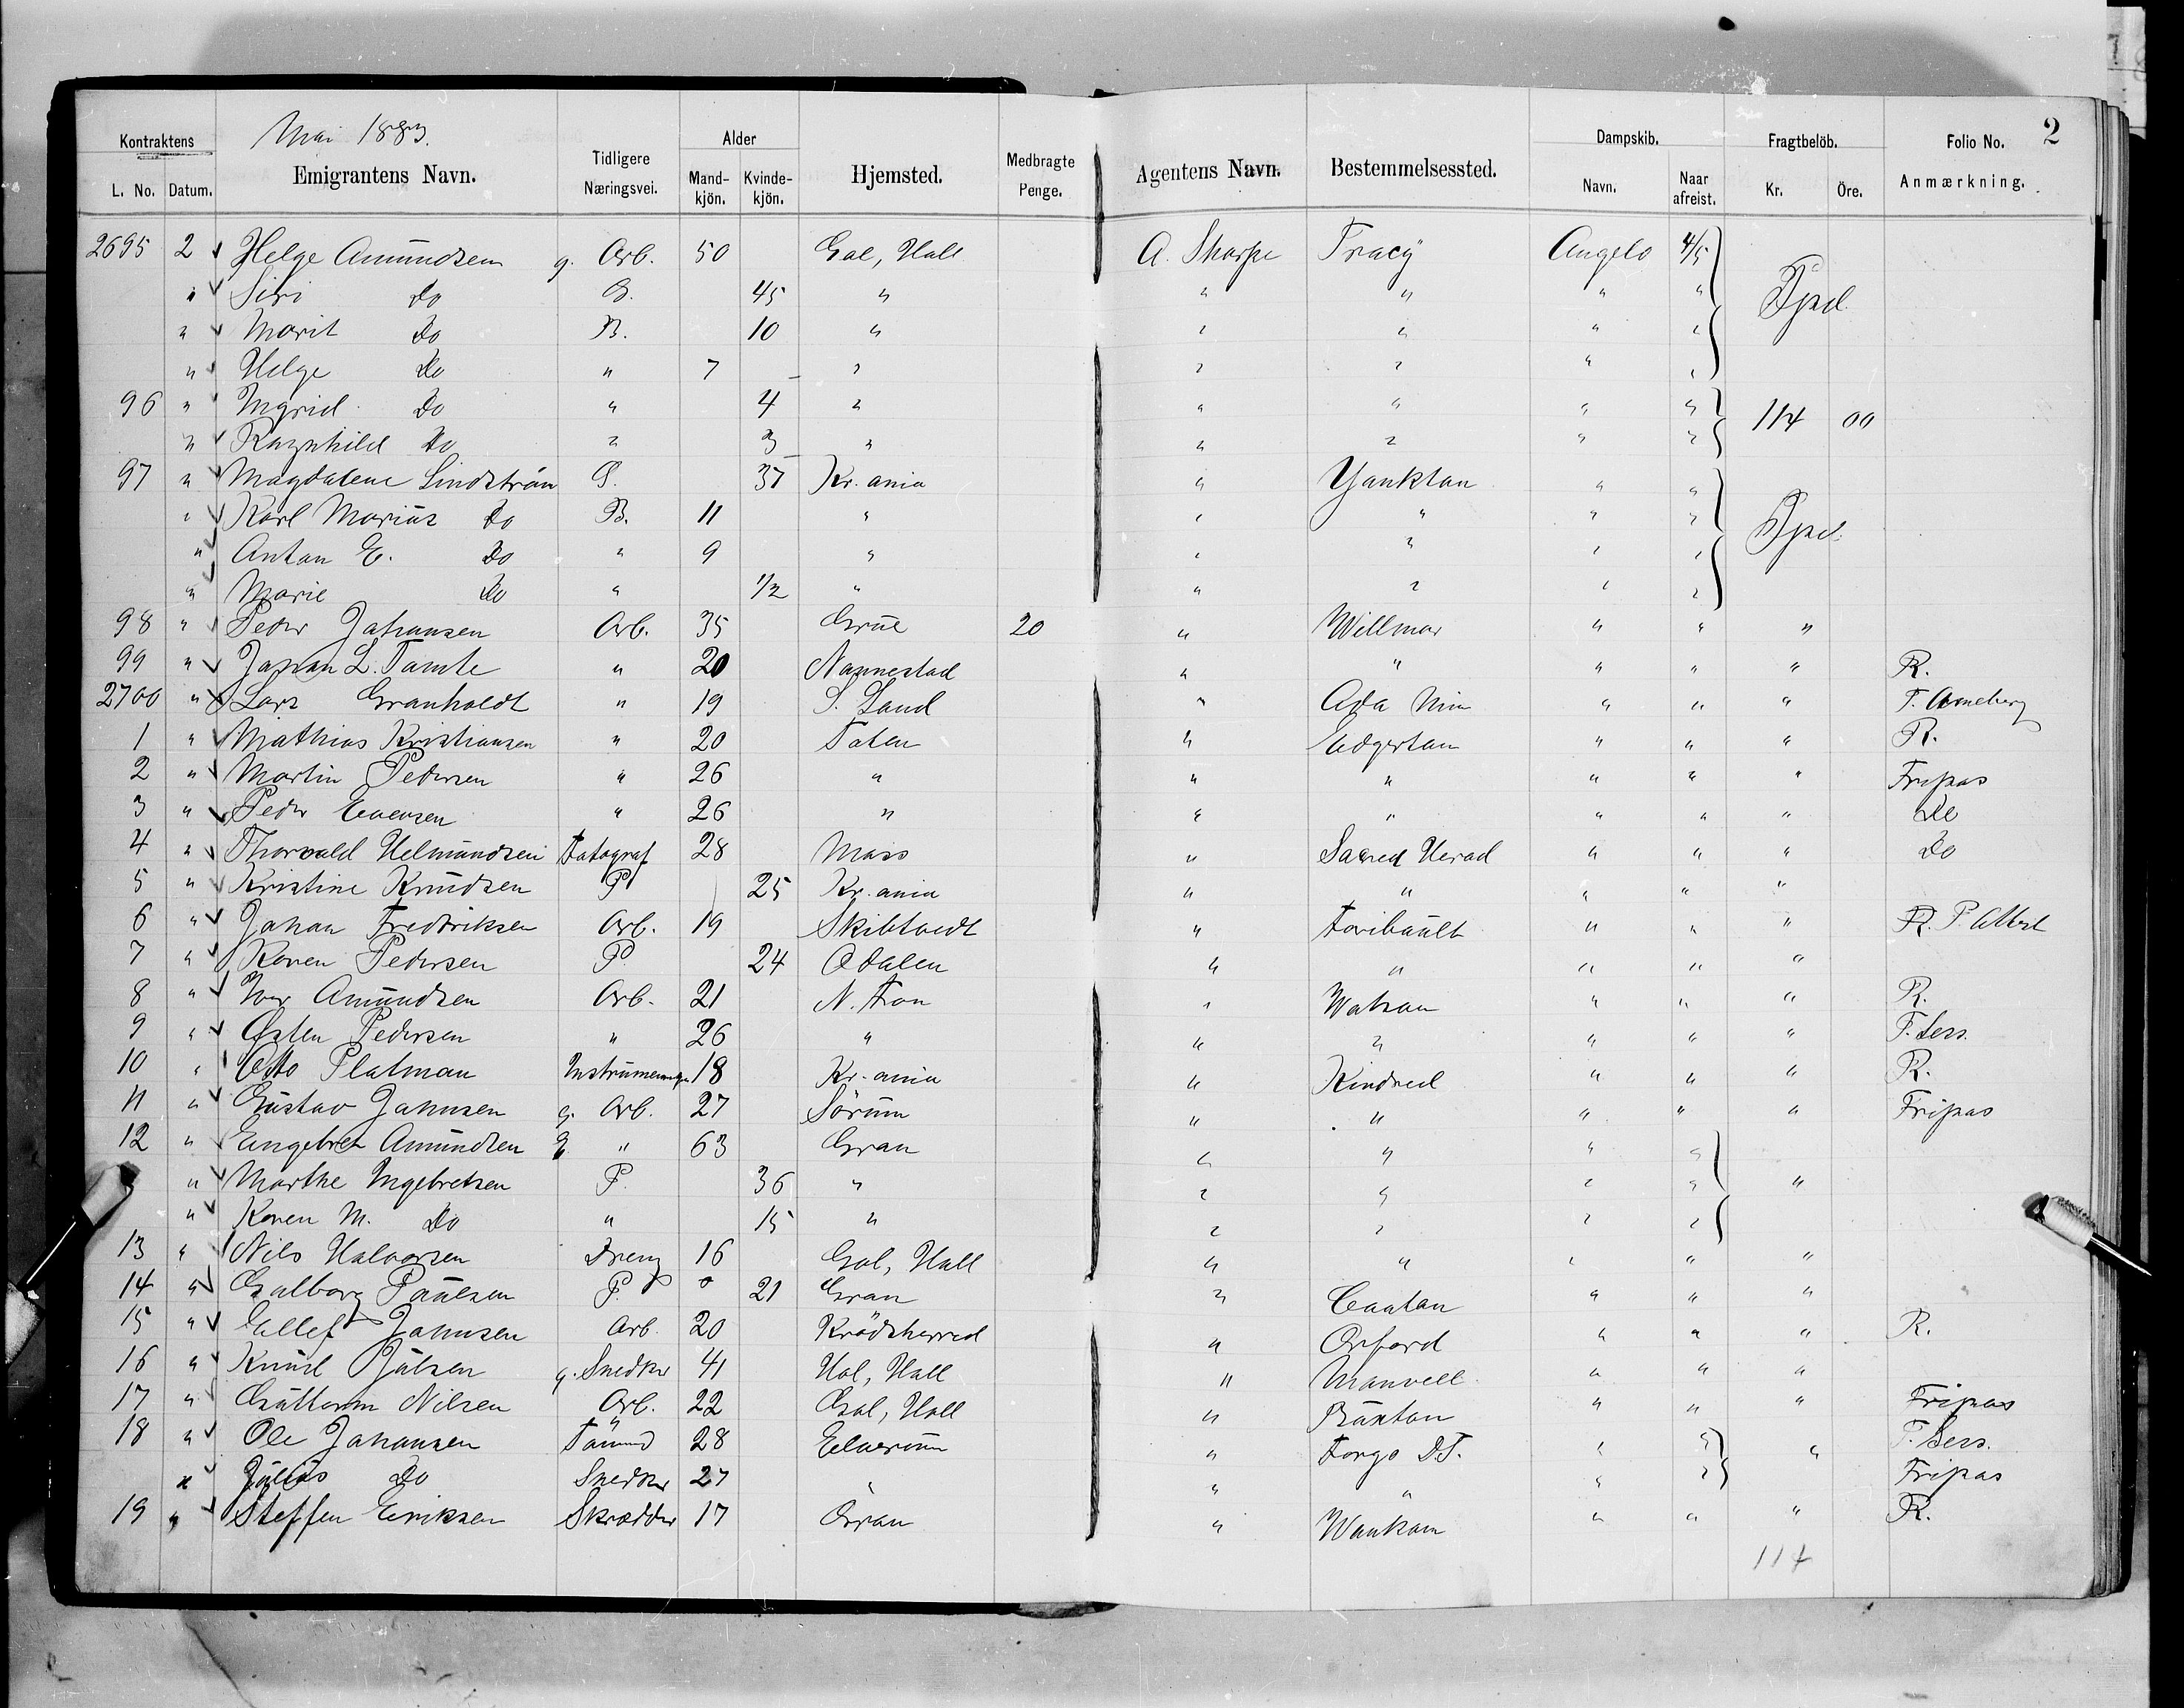 Mai 1883.
2
Kontraktens L. No. Datum. Emigrantens Navn. Tidligere Næringsvei. Alder Mandkjön. Kvindekjön. Hjemsted. Medbragte Penge. Agentens Navn. Bestemmelsessted. Dampskib. Navn. Naar afreist. Fragtbelöb. Kr. Öre. Folio No. Anmærkning.
2695 2 Helge Amundsen g. Arb. 50 Gol, Hall A. Sharpe Tracy Angelo 4/5
" Siri Do G. 45 " " " " " Bpd
" Marit Do B. 10 " " " " "
" Helge Do " 7 " " " " "
96 " Ingrid Do " 4 " " " " " 114 00
" Ragnhild Do " 3 " " " " "
97 " Magdalene Lindström G. 37 Kr.ania " Yankton " "
" Karl Marius Do B. 11 " " " " " Bpd.
" Anton E. Do " 9 " " " " "
" Marie Do " 1/2 " " " " "
98 " Peder Johansen Arb. 35 Grue 20 " Willmar " " "
99 " Johan L. Tamte " 20 Nannestad " " " " " R.
2700 " Lars Granholdt " 19 S. Land " Ada Min " " " F. Arneberg
1 " Mathias Kristiansen " 20 Toten " Edgerton " " " R.
2 " Martin Pedersen " 26 " " " " " " Fripas
3 " Peder Evensen " 26 " " " " " " Do
4 " Thorvald Helmundsen Fotograf 28 Moss " Sacred Herad " " " Do
5 " Kristine Knudsen P 25 Kr.ania " " " " "
6 " Johan Fredriksen Arb. 19 Skibtvedt " Foribault " " " R. P. Albert
7 " Karen Pedersen P 24 Odalen " " " " "
8 " Iver Amundsen Arb. 21 N. Fron " Watson " " " R.
9 " Østen Pedersen " 26 " " " " " " F. Sers.
10 " Otto Platman 18 Kr.ania " Kindred " " " R.
11 " Gustav Johnsen g. Arb. 27 Sörum " " " " " Fripas
12 " Engebret Amundsen E " 63 Gran " " " "
" Marthe Ingebretsen P. 36 " " " " " "
" Karen M. Do " 15 " " " " "
13 " Nils Halvorsen Dreng 16 Gol, Hall " " " " "
14 " Golborg Paulsen P. 21 Gran " Canton " " "
15 " Ellef Johnsen Arb. 20 Krödsherred " Orford " " " R.
16 " Knud Julsen g. Snedker 41 Hol, Hall " Manvell " " "
17 " Guttorm Nilsen Arb. 22 Gol, Hall " Buxton " " " Fripas
18 " Ole Johansen Tömmd 28 Elverum " Forgo D.T. " " " F. Sers.
" Julius Do Snedker 27 " " " " " Fripas
19 " Steffen Eriksen Skrædder 17 Gran " Waukon " " " R.
114